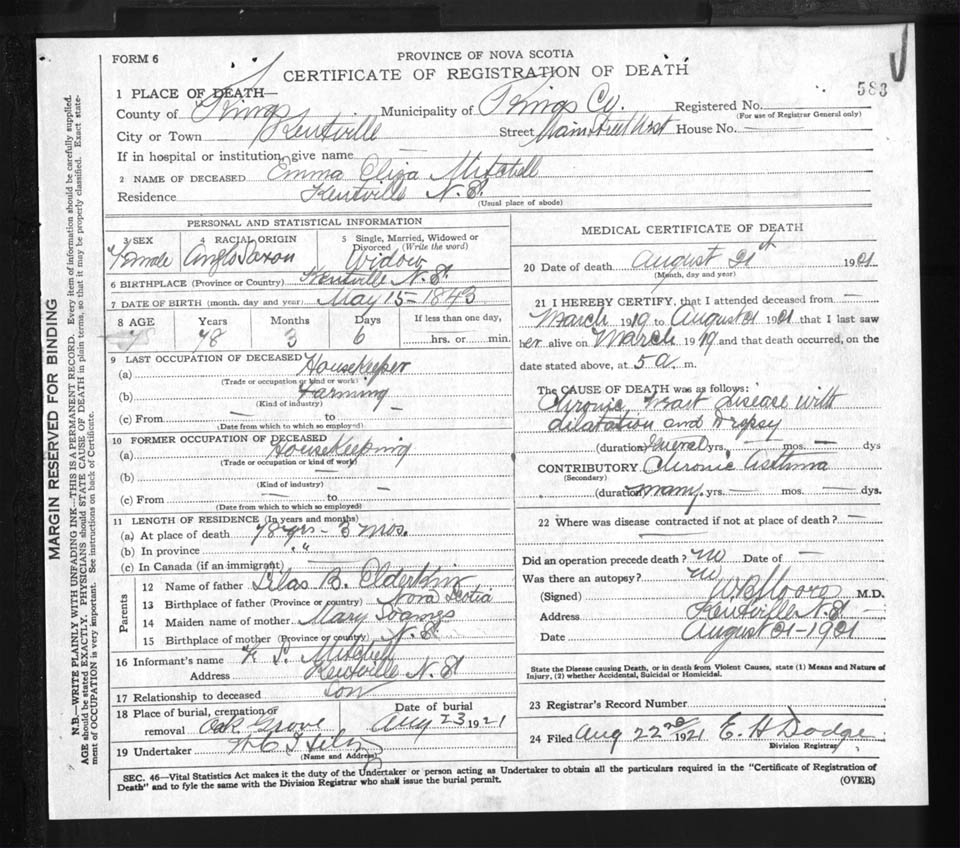 FORM 6
PROVINCE OF NOVA SCOTIA
CERTIFICATE OF REGISTRATION OF DEATH
583
1 PLACE OF DEATH—
County of Kings Municipality of Kings Co. Registered No.
(For use of Registrar General only)
City or Town Kentville Street Main Street West House No. —
If in hospital or institution, give name —
2 NAME OF DECEASED Emma Eliza Mitchell
Residence Kentville N.S.
(Usual place of abode)
PERSONAL AND STATISTICAL INFORMATION
3 SEX 4 RACIAL ORIGIN 5 Single, Married, Widowed or
Divorced (Write the word)
Female Anglo Saxon Widow
6 BIRTHPLACE (Province or Country) Kentville N.S.
7 DATE OF BIRTH (month, day and year) May 15 - 1843
8 AGE Years Months Days If less than one day,
78 78 3 6 hrs. or min.
9 LAST OCCUPATION OF DECEASED
(a) Housekeeper
(Trade or occupation or kind or work)
(b) Farming
(Kind of industry)
(c) From — to
(Date from which to which so employed)
10 FORMER OCCUPATION OF DECEASED
(a) Housekeeping
(Trade or occupation or kind of work)
(b) —
(Kind of industry)
(c) From — to —
(Date from which to which so employed)
11 LENGTH OF RESIDENCE (In years and months)
(a) At place of death 78 yrs - 3 mos.
(b) In province " "
(c) In Canada (if an immigrant)
Parents
12 Name of father Silas B. Elderkin
13 Birthplace of father (Province or country) Nova Scotia
14 Maiden name of mother Mary
15 Birthplace of mother (Province or country) N.S.
16 Informant's name Mitchell
Address Kentville N.S.
17 Relationship to deceased Son
18 Place of burial, cremation or
removal Oak Grove
Date of burial
Aug 23 1921
19 Undertaker
(Name and Address)
MEDICAL CERTIFICATE OF DEATH
20 Date of death August 21st 1921
(Month, day and year)
21 I HEREBY CERTIFY, that I attended deceased from
March 1919 to August 21 1921 that I last saw
her alive on March 1919 and that death occurred, on the
date stated above, at 5 a. m.
The CAUSE OF DEATH was as follows:
Chronic Heart Disease with
dilatation and Dropsy
(duration) Several yrs. — mos. — dys
CONTRIBUTORY Chronic Asthma
(Secondary)
(duration) many yrs. — mos. — dys.
22 Where was disease contracted if not at place of death? —
Did an operation precede death? no Date of —
Was there an autopsy? no
(Signed) M.D.
Address Kentville N.S.
Date August 21 - 1921
State the Disease causing Death, or in death from Violent Causes, state (1) Means and Nature of
Injury, (2) whether Accidental, Suicidal or Homicidal.
23 Registrar's Record Number
24 Filed Aug 22nd 1921 E. H Dodge
Division Registrar
SEC. 46—Vital Statistics Act makes it the duty of the Undertaker or person acting as Undertaker to obtain all the particulars required in the "Certificate of Registration of
Death" and to fyle the same with the Division Registrar who shall issue the burial permit.
(OVER)
MARGIN RESERVED FOR BINDING
N.B.—WRITE PLAINLY WITH UNFADING INK—THIS IS A PERMANENT RECORD. Every item of information should be carefully supplied.
AGE should be stated EXACTLY. PHYSICIANS should STATE CAUSE OF DEATH in plain terms, so that it may be properly classified. Exact state-
ment of OCCUPATION is very important. See instructions on back of Certificate.